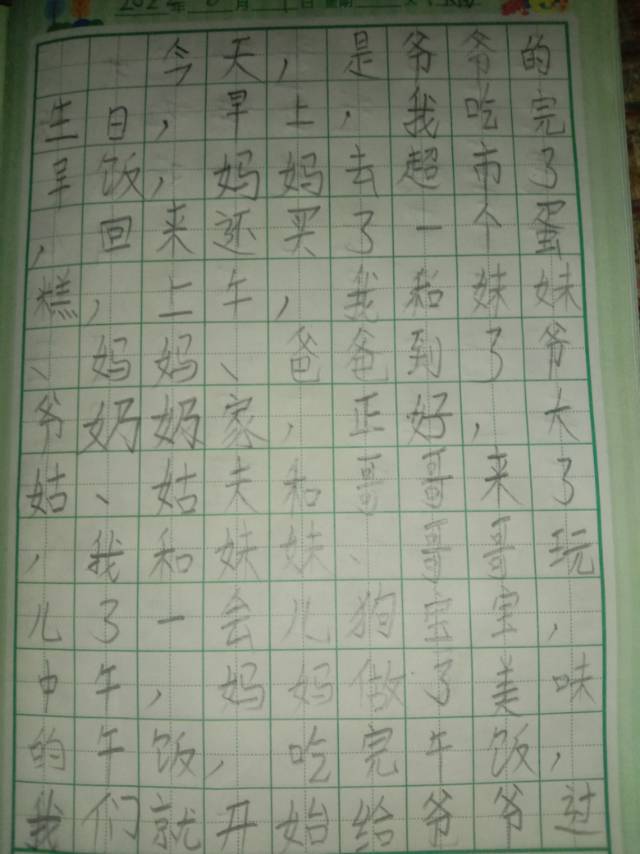 今天，是爷爷的
生日，早上，我吃完
早饭，妈妈去超市了
，回来还买了一个蛋
糕，上午，我和妹妹
、妈妈、爸爸到了爷
爷奶奶家，正好，大
姑、姑夫和哥哥来了
，我和妹妹、哥哥玩
儿了一会儿狗宝宝，
中午，妈妈做了美味
的午饭，吃完午饭，
我们就开始给爷爷过